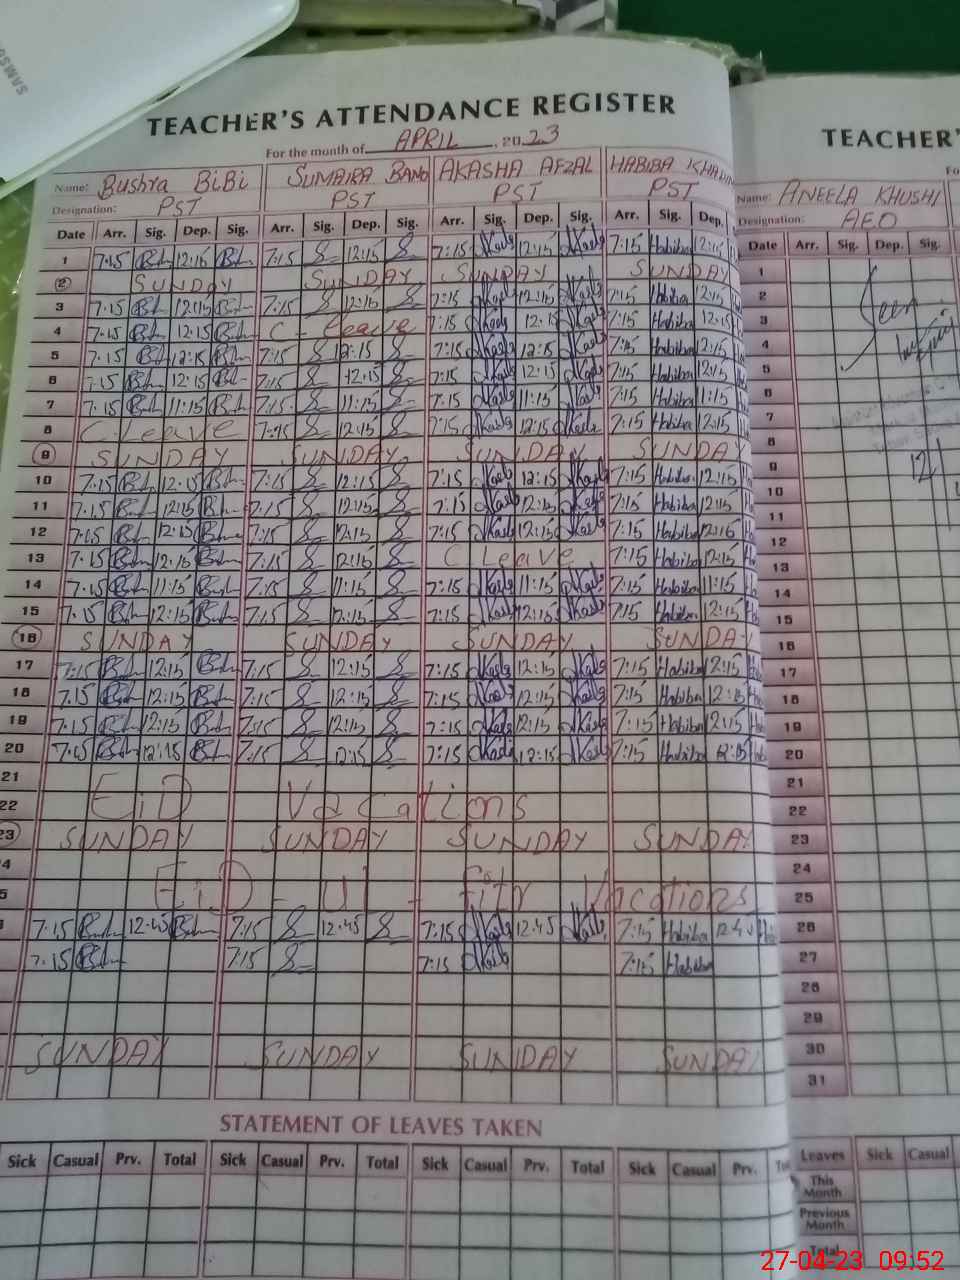 SAMSU
TEACHER'S ATTENDANCE REGISTER
For the month of APRIL, 2023
Name: Bushra BiBi SUMAIRA BANO AKASHA AFZAL HABIBA KHAN
Designation: PST PST PST PST
Date Arr. Sig. Dep. Sig. Arr. Sig. Dep. Sig. Arr. Sig. Dep. Sig. Arr. Sig. Dep.
1 7:15 12:15 7:15 12:15 7:15 12:15 7:15 Habiba 12:15
2 SUNDAY SUNDAY SUNDAY SUNDAY
3 7:15 12:15 7:15 12:15 7:15 12:15 7:15 Habiba 12:15
4 7:15 12:15 C - leave 7:15 12:15 7:15 Habiba 12:15
5 7:15 12:15 7:15 12:15 7:15 12:15 7:15 Habiba 12:15
6 7:15 12:15 7:15 12:15 7:15 12:15 7:15 Habiba 12:15
7 7:15 11:15 7:15 11:15 7:15 11:15 7:15 Habiba 11:15
8 C. Leave 7:15 12:15 7:15 12:15 7:15 Habiba 12:15
9 SUNDAY SUNDAY SUNDAY SUNDAY
10 7:15 12:15 7:15 12:15 7:15 12:15 7:15 Habiba 12:15
11 7:15 12:15 7:15 12:15 7:15 12:15 7:15 Habiba 12:15
12 7:15 12:15 7:15 12:15 7:15 12:15 7:15 Habiba 12:15
13 7:15 12:15 7:15 12:15 C Leave 7:15 Habiba 12:15
14 7:15 11:15 7:15 11:15 7:15 11:15 7:15 Habiba 11:15
15 7:15 12:15 7:15 12:15 7:15 12:15 7:15 Habiba 12:15
16 SUNDAY SUNDAY SUNDAY SUNDAY
17 7:15 12:15 7:15 12:15 7:15 12:15 7:15 Habiba 12:15
18 7:15 12:15 7:15 12:15 7:15 12:15 7:15 Habiba 12:15
19 7:15 12:15 7:15 12:15 7:15 12:15 7:15 Habiba 12:15
20 7:15 12:15 7:15 12:15 7:15 12:15 7:15 Habiba 12:15
21
22 EiD Vacations
23 SUNDAY SUNDAY SUNDAY SUNDAY
4
5 EiD - ul - fitr Vacations
7:15 12:45 7:15 12:45 7:15 12:45 7:15 Habiba 12:45
7:15 7:15 7:15 7:15 Habiba
SUNDAY SUNDAY SUNDAY SUNDAY
STATEMENT OF LEAVES TAKEN
Sick Casual Prv. Total Sick Casual Prv. Total Sick Casual Prv. Total Sick Casual Prv.
TEACHER'
Fo
Name: ANEELA KHUSHI
Designation: AEO
Date Arr. Sig. Dep. Sig.
1
2 Seen
3
4
5
6
7
8
9
10
11
12
13
14
15
16
17
18
19
20
21
22
23
24
25
26
27
28
29
30
31
Leaves Sick Casual
This Month
Previous Month
Total
27-04-23 09:52